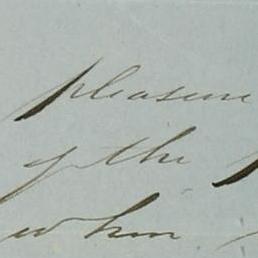 pleasure
of the
whom